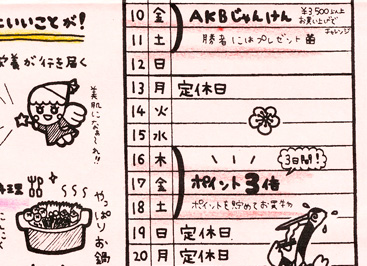 にいいことが!
栄養が行き届く
美肌になぁ〜れ!!
料理
やっぱりお鍋
10 金 AKBじゃんけん ¥3,500以上お買い上げでチャレンジ
11 土 勝者にはプレゼント
12 日
13 月 定休日
14 火
15 水
16 木 3日間!
17 金 ポイント3倍
18 土 ポイントを貯めてお買物
19 日 定休日
20 月 定休日